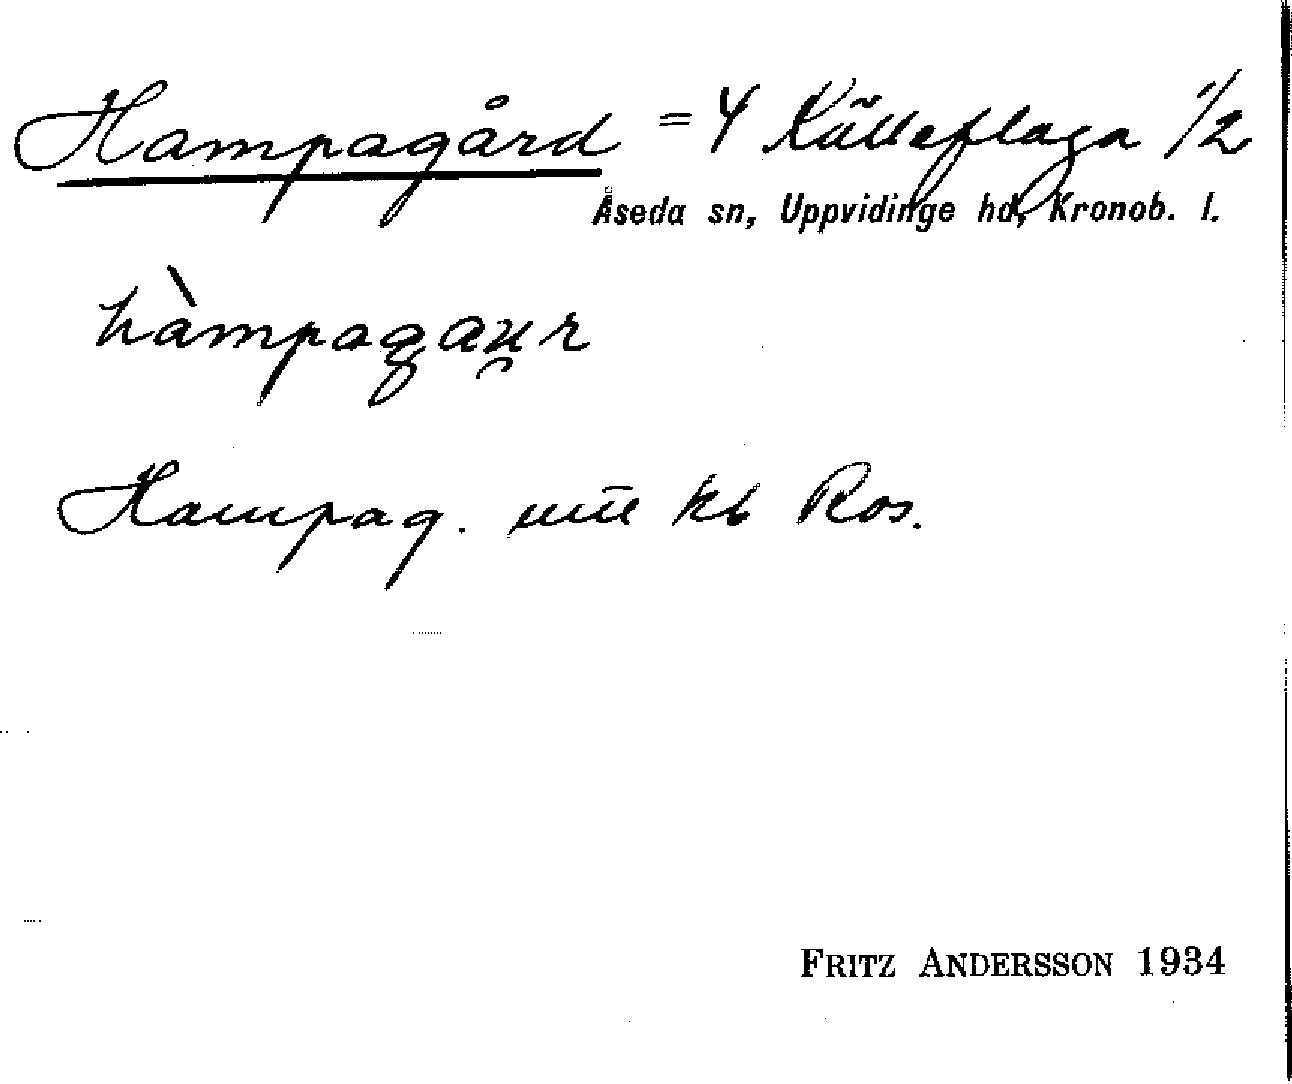 Hampagård = 4 Kulleflaga 1/2
Åseda sn, Uppvidinge hd, Kronob. l.
hàmpagau̯r
Hampag. kb Ros.
FRITZ ANDERSSON 1934